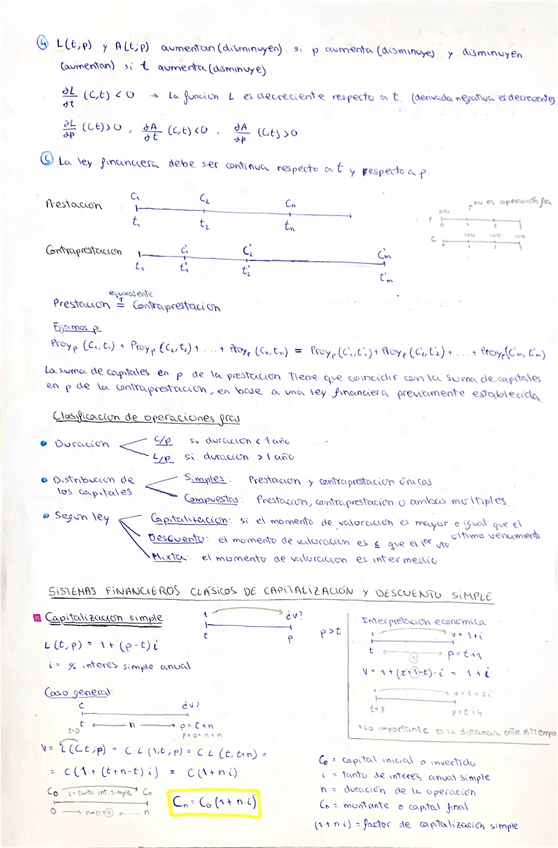 ④ L(t,p) y A(t,p) aumentan (disminuyen) si p aumenta (disminuye) y disminuyen
(aumentan) si t aumenta (disminuye).
∂L/∂t (C,t) < 0 → La función L es decreciente respecto a t. (derivada negativa es decreciente)
∂L/∂p (C,t) > 0, ∂A/∂t (C,t) < 0, ∂A/∂p (C,t) > 0
La ley financiera debe ser continua respecto a t y respecto a p.
Prestación C₁ C₂ Cn
t₁ t₂ tn
no es operación fra
P
C 100 100 100
0 1 2 3
Contraprestación C'₁ C'₂ C'm
t₁ t'₁ t'₂ t'm
equivalente
Prestación = Contraprestación
Fijamos p
Proy_p (C₁,t₁) + Proy_p (C₂,t₂) + ... + Proy_p (Cn,tn) = Proy_p (C'₁,t'₁) + Proy_p (C'₂,t'₂) + ... + Proy_p (C'm,t'm)
La suma de capitales en p de la prestación tiene que coincidir con la suma de capitales
en p de la contraprestación, en base a una ley financiera previamente establecida
Clasificación de operaciones fras
• Duración c/p si duración < 1 año
L/p si duración > 1 año
• Distribución de los capitales Simples: Prestación y contraprestación únicas
Compuestas: Prestación, contraprestación o ambas múltiples
• Según ley Capitalización: si el momento de valoración es mayor o igual que el último vencimiento
Descuento: el momento de valoración es ≤ que el 1er vto
Mixta: el momento de valoración es intermedio
SISTEMAS FINANCIEROS CLÁSICOS DE CAPITALIZACIÓN Y DESCUENTO SIMPLE
Capitalización simple
1 ¿V?
t p p>t
L(t,p) = 1 + (p-t) i
i = % interés simple anual
Interpretación económica
1 V = 1+i
t 1 p = t+1
V = 1 + (t+1-t)·i = 1+i
t+3 p = t+4
*Lo importante es la distancia entre el tiempo
Caso general
C ¿V?
t n p = t+n
t=0 p=0+n=n
V = (C,t,p) = C·L(t,p) = C·L(t,t+n) =
= C(1 + (t+n-t) i) = C(1+ni)
C₀ i = tanto int. simple Cn
0 n
Cn = C₀(1+n·i)
C₀ = capital inicial o invertido
i = tanto de interés anual simple
n = duración de la operación
Cn = montante o capital final
(1+n·i) = factor de capitalización simple